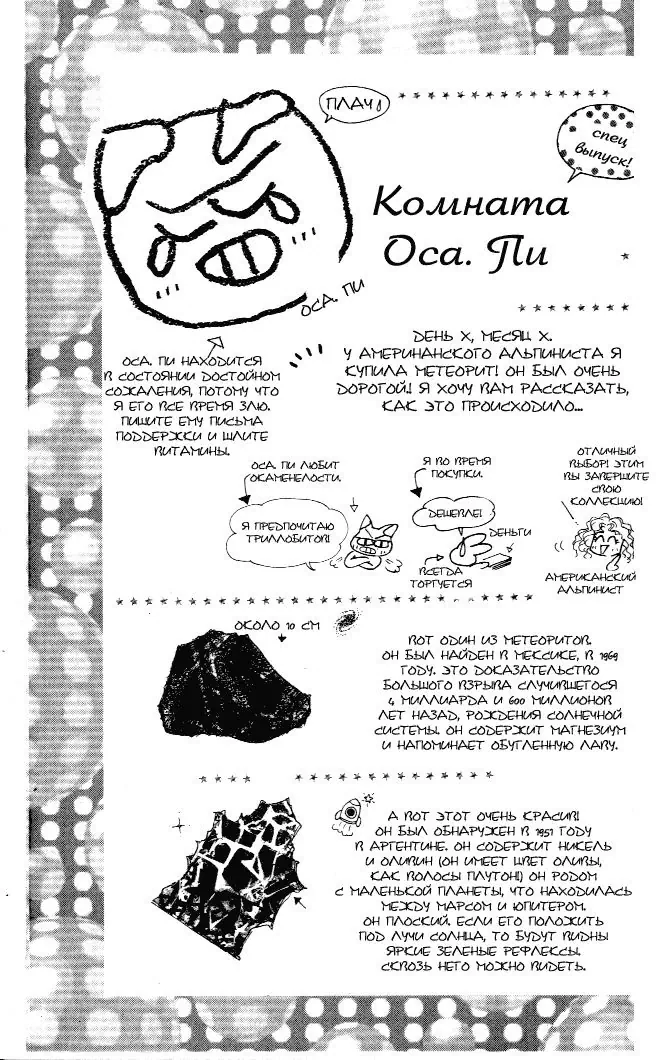 ПЛАЧ
спец
выпуск!
Комната
Оса. Пи
ОСА. ПИ
ОСА. ПИ НАХОДИТСЯ
В СОСТОЯНИИ ДОСТОЙНОМ
СОЖАЛЕНИЯ, ПОТОМУ ЧТО
Я ЕГО ВСЕ ВРЕМЯ ЗЛЮ.
ПИШИТЕ ЕМУ ПИСЬМА
ПОДДЕРЖКИ И ШЛИТЕ
ВИТАМИНЫ.
ДЕНЬ Х, МЕСЯЦ Х.
У АМЕРИНАНСКОГО АЛЬПИНИСТА Я
КУПИЛА МЕТЕОРИТ! ОН БЫЛ ОЧЕНЬ
ДОРОГОЙ! Я ХОЧУ ВАМ РАССКАЗАТЬ,
КАК ЭТО ПРОИСХОДИЛО...
ОСА. ПИ ЛЮБИТ
ОКАМЕНЕЛОСТИ.
Я ПРЕДПОЧИТАЮ
ТРИЛЛОБИТОВ!
Я ВО ВРЕМЯ
ПОКУПКИ.
ДЕШЕВЛЕ!
ДЕНЬГИ
ВСЕГДА
ТОРГУЕТСЯ
ОТЛИЧНЫЙ
ВЫБОР! ЭТИМ
ВЫ ЗАВЕРШИТЕ
СВОЮ
КОЛЛЕКЦИЮ!
АМЕРИКАНСКИЙ
АЛЬПИНИСТ
ОКОЛО 10 СМ
ВОТ ОДИН ИЗ МЕТЕОРИТОВ.
ОН БЫЛ НАЙДЕН В МЕКСИКЕ, В 1969
ГОДУ. ЭТО ДОКАЗАТЕЛЬСТВО
БОЛЬШОГО ВЗРЫВА СЛУЧИВШЕГОСЯ
4 МИЛЛИАРДА И 600 МИЛЛИОНОВ
ЛЕТ НАЗАД, РОЖДЕНИЯ СОЛНЕЧНОЙ
СИСТЕМЫ. ОН СОДЕРЖИТ МАГНЕЗИУМ
И НАПОМИНАЕТ ОБУГЛЕННУЮ ЛАВУ.
А ВОТ ЭТОТ ОЧЕНЬ КРАСИВ!
ОН БЫЛ ОБНАРУЖЕН В 1951 ГОДУ
В АРГЕНТИНЕ. ОН СОДЕРЖИТ НИКЕЛЬ
И ОЛИВИН (ОН ИМЕЕТ ЦВЕТ ОЛИВЫ,
КАК ВОЛОСЫ ПЛУТОН!) ОН РОДОМ
С МАЛЕНЬКОЙ ПЛАНЕТЫ, ЧТО НАХОДИЛАСЬ
МЕЖДУ МАРСОМ И ЮПИТЕРОМ.
ОН ПЛОСКИЙ. ЕСЛИ ЕГО ПОЛОЖИТЬ
ПОД ЛУЧИ СОЛНЦА, ТО БУДУТ ВИДНЫ
ЯРКИЕ ЗЕЛЕНЫЕ РЕФЛЕКСЫ.
СКВОЗЬ НЕГО МОЖНО ВИДЕТЬ.